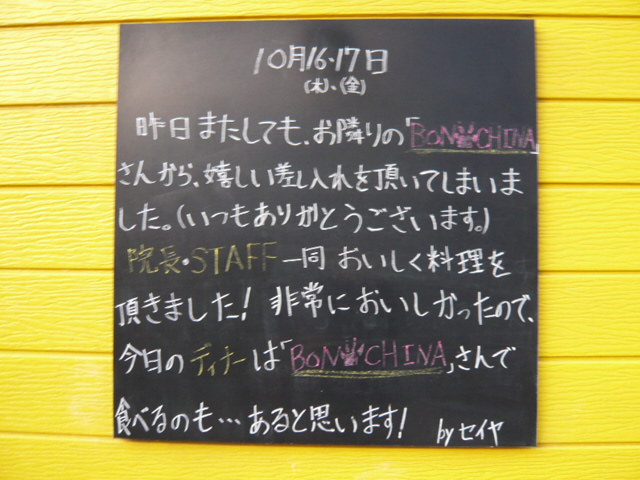 10月16・17日
(木)、(金)
昨日またしても、お隣りの「BON CHINA」
さんから、嬉しい差し入れを頂いてしまいま
した。(いつもありがとうございます。)
院長・STAFF一同おいしく料理を
頂きました！非常においしかったので、
今日のディナーは「BON CHINA」さんで
食べるのも…あると思います！ byセイヤ